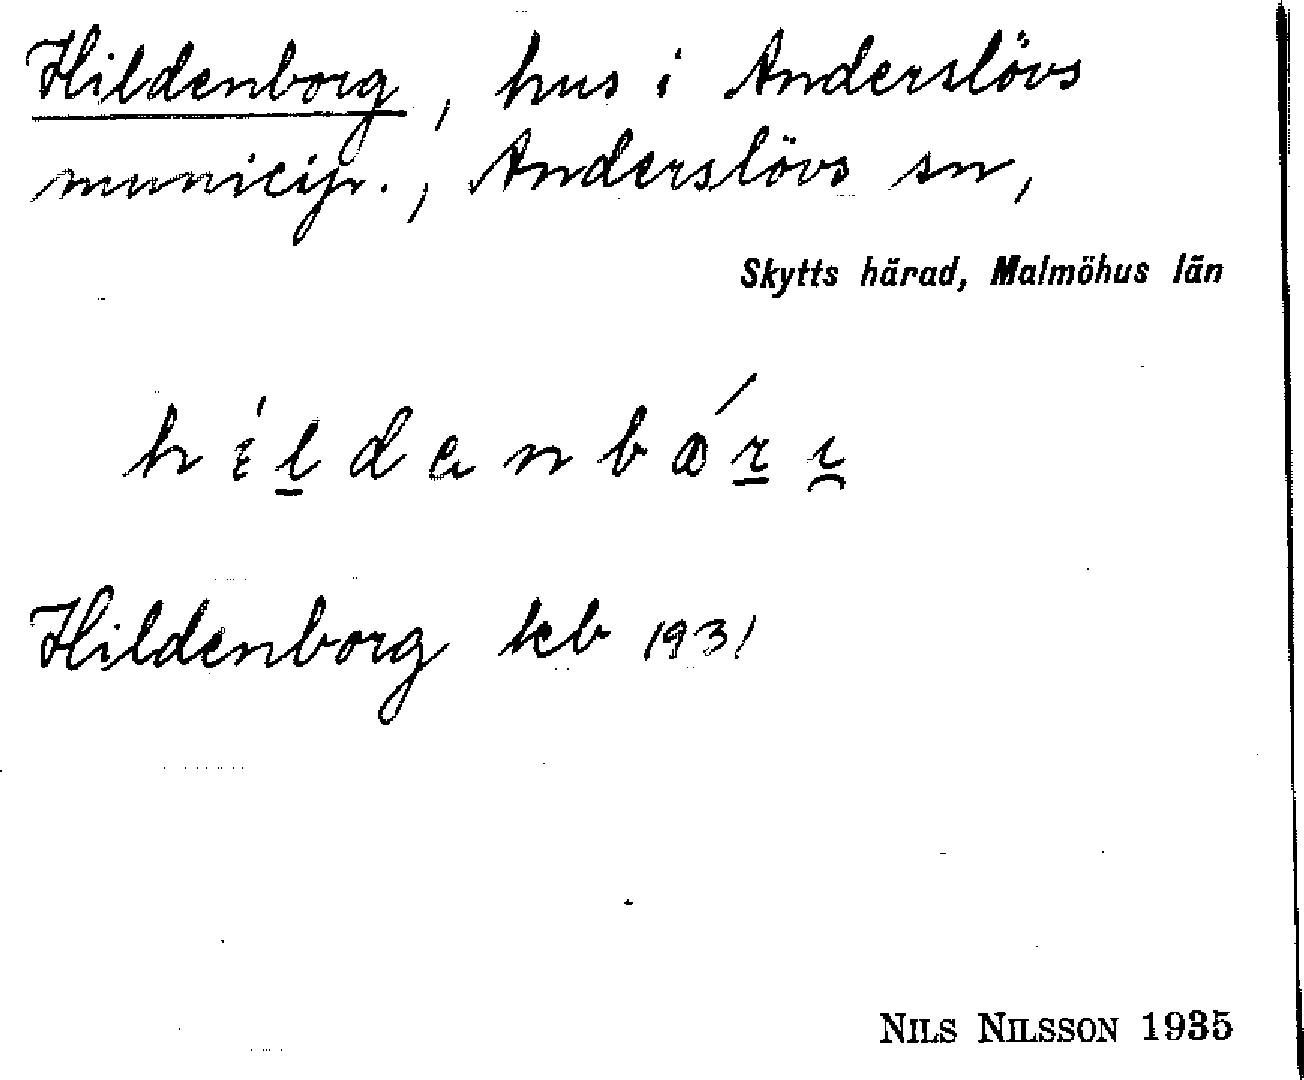 Hildenborg, hus i Anderslövs
municip., Anderslövs sn,
Skytts härad, Malmöhus län
Hildenborg kb 1931
NILS NILSSON 1935